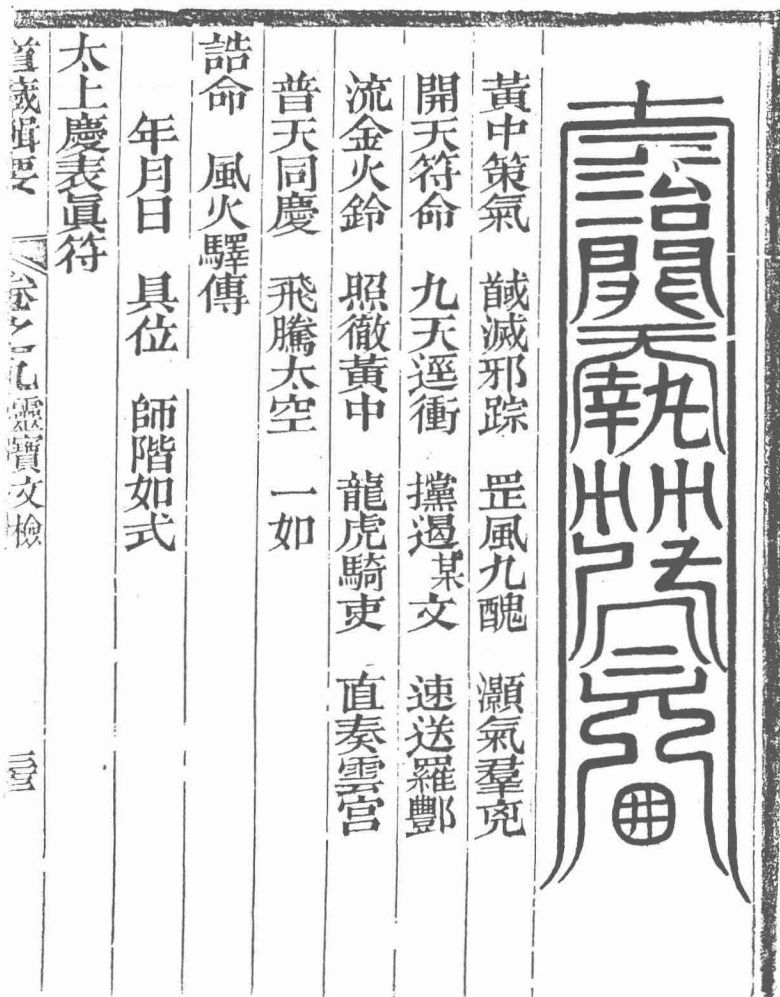 黃中策氣 馘滅邪踪 罡風九醜 灝氣羣兇
開天符命 九天逕衝 攩遏某文 速送羅酆
流金火鈴 照徹黃中 龍虎騎吏 直奏雲宮
普天同慶 飛騰太空 一如
誥命 風火驛傳
年月日 具位 師階如式
太上慶表眞符
道藏輯要 卷之九 靈寶文檢